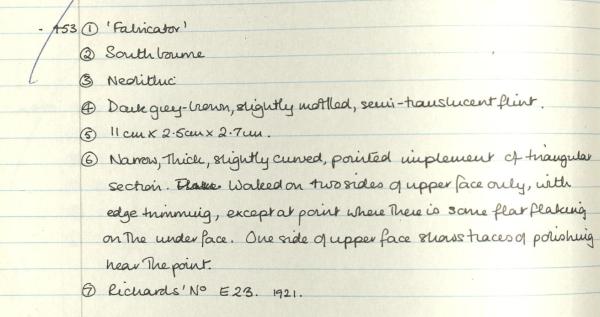 453 ① 'Fabricator'
② Southbourne
③ Neolithic
④ Dark grey-brown, slightly mottled, semi-translucent flint.
⑤ 11cm x 2.5cm x 2.7cm.
⑥ Narrow, thick, slightly curved, pointed implement of triangular
section. Worked on two sides of upper face only, with
edge trimming, except at point where there is some flat flaking
on the under face. One side of upper face shows traces of polishing
near the point.
⑦ Richards' No E23. 1921.